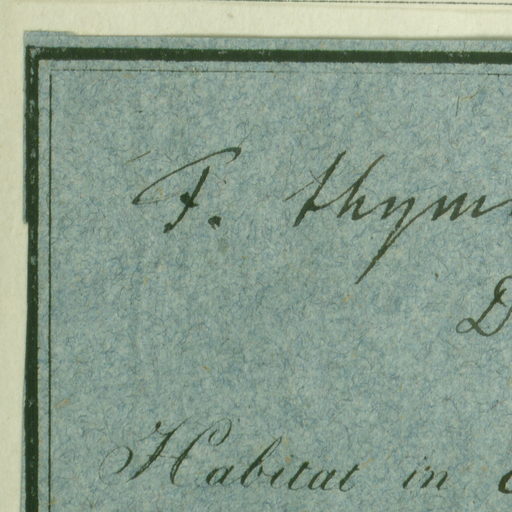 F. thym
D
Habitat in